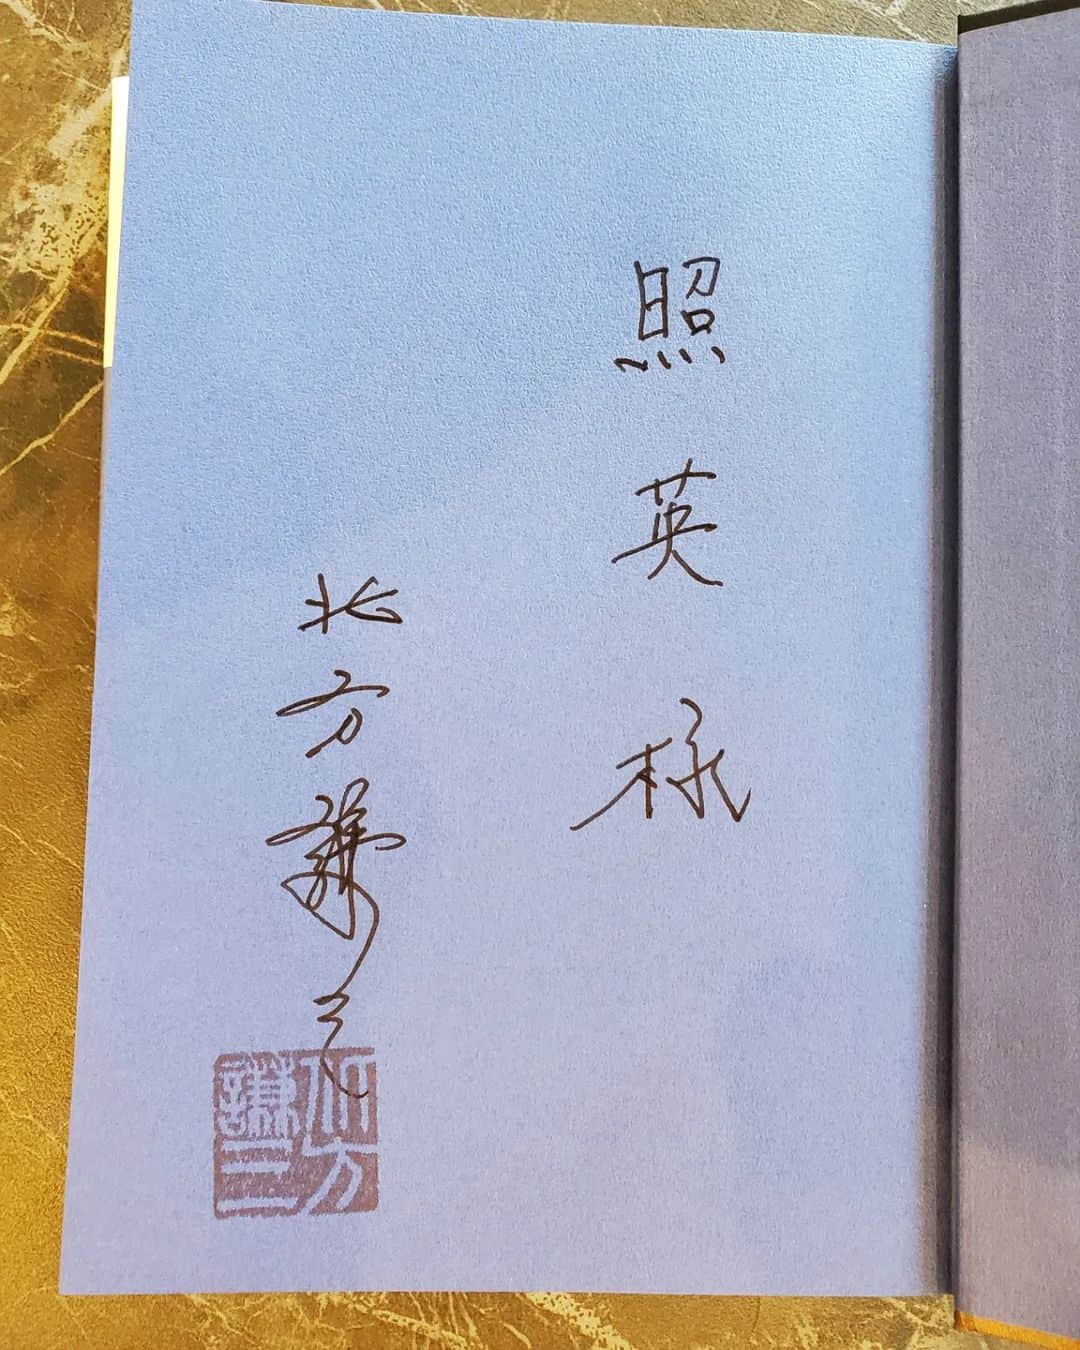 照英様
北方謙三
北方
謙三